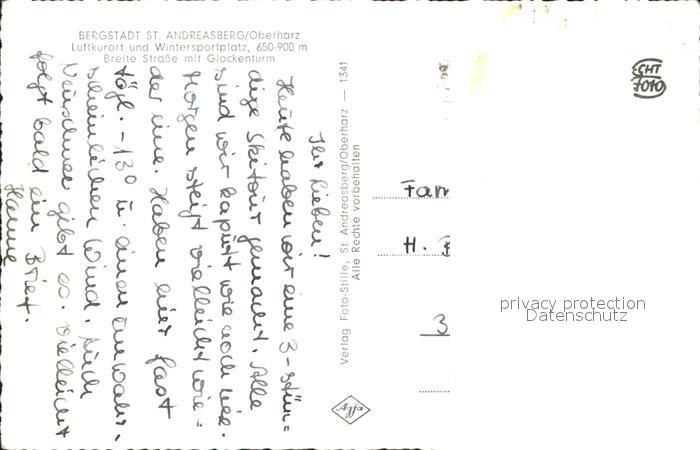 BERGSTADT ST. ANDREASBERG/Oberharz
Luftkurort und Wintersportplatz, 650-900 m
Breite Straße mit Glockenturm
Ihr Lieben!
Heute haben wir eine 3-stün=
dige Skitour gemacht. Alle
sind wir kaputt wie noch nie.
Morgen steigt vielleicht wie=
der eine. Haben hier fast
tägl. -13° u. einen
scheinlichen Wind. Auch
Neuschnee gibt es. Vielleicht
folgt bald ein Brief.
Hanne
Verlag Foto-Stille, St. Andreasberg/Oberharz — 1341
Alle Rechte vorbehalten
Agfa
FOTO
Fam
H.
3
privacy protection
Datenschutz